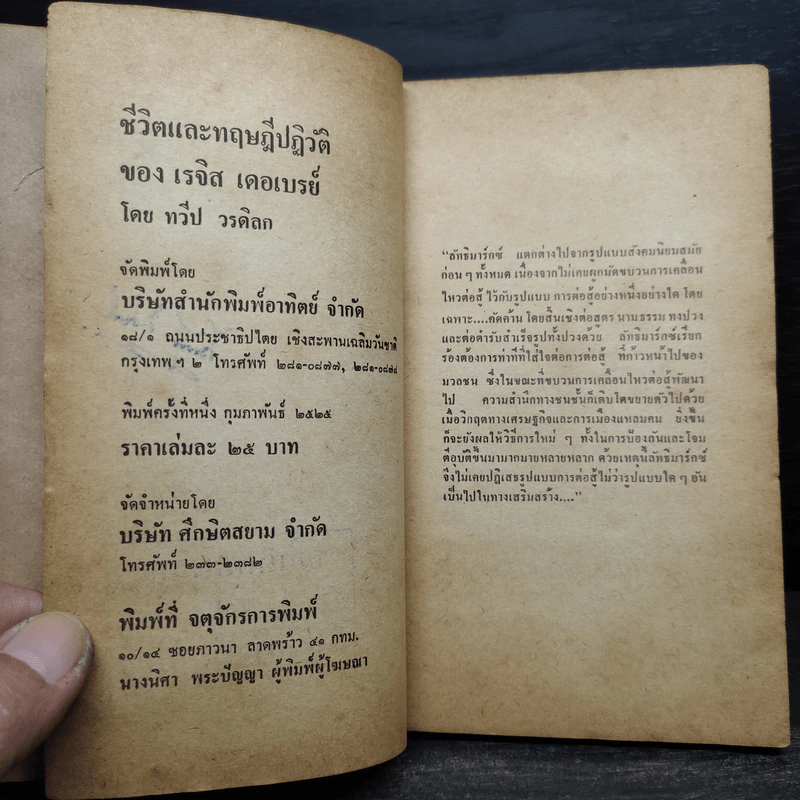 ชีวิตและทฤษฎีปฏิวัติ
ของ เรจิส เดอเบรย์
โดย ทวีป วรดิลก
จัดพิมพ์โดย
บริษัทสำนักพิมพ์อาทิตย์ จำกัด
๑๘/๑ ถนนประชาธิปไตย เชิงสะพานเฉลิมวันชาติ
กรุงเทพ ฯ ๒ โทรศัพท์ ๒๘๑-๐๘๗๗, ๒๘๑-๐๘๗๘
พิมพ์ครั้งที่หนึ่ง กุมภาพันธ์ ๒๕๒๕
ราคาเล่มละ ๒๕ บาท
จัดจำหน่ายโดย
บริษัท ศึกษิตสยาม จำกัด
โทรศัพท์ ๒๓๓-๒๓๘๒
พิมพ์ที่ จตุจักรการพิมพ์
๑๐/๑๔ ซอยภาวนา ลาดพร้าว ๔๑ กทม.
นางนิศา พระปัญญา ผู้พิมพ์ผู้โฆษณา
“ลัทธิมาร์กซ์ แตกต่างไปจากรูปแบบสังคมนิยมสมัย
ก่อน ๆ ทั้งหมด เนื่องจากไม่เคยผูกมัดขบวนการเคลื่อน
ไหวต่อสู้ ไว้กับรูปแบบ การต่อสู้อย่างหนึ่งอย่างใด โดย
เฉพาะ....คัดค้าน โดยสิ้นเชิงต่อสูตร นามธรรม ทั้งปวง
และต่อตำรับสำเร็จรูปทั้งปวงด้วย ลัทธิมาร์กซ์เรียก
ร้องต้องการท่าทีที่ใส่ใจต่อการต่อสู้ ที่ก้าวหน้าไปของ
มวลชน ซึ่งในขณะที่ขบวนการเคลื่อนไหวต่อสู้พัฒนา
ไป ความสำนึกทางชนชั้นก็เติบโตขยายตัวไปด้วย
เมื่อวิกฤตทางเศรษฐกิจและการเมืองแหลมคม ยิ่งขึ้น
ก็จะยังผลให้วิธีการใหม่ ๆ ทั้งในการป้องกันและโจม
ตีอุบัติขึ้นมามากมายหลายหลาก ด้วยเหตุนี้ลัทธิมาร์กซ์
จึงไม่เคยปฏิเสธรูปแบบการต่อสู้ไม่ว่ารูปแบบใด ๆ อัน
เป็นไปในทางเสริมสร้าง....”